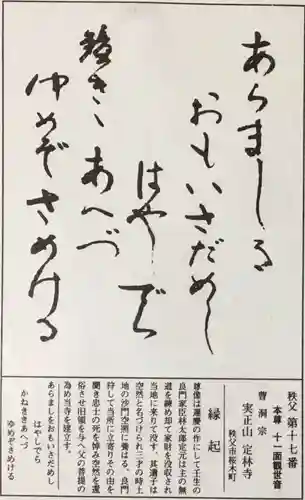 あらましを
おもいさだめし
はやしでら
鐘きゝあへづ
ゆめぞさめける
秩父 第十七番
本尊 十一面観世音
曹洞宗
実正山 定林寺
秩父市桜木町
縁起
尊像は運慶の作にして壬生の
良門家臣林太郎定元は主の無
道を諫め却て家財を没収され
当地に来りて没す。其遺子は
空然と名づけられ三才の時土
地の沙門空照に養はる。良門
狩して当所に立寄りその由を
聞き忠士の死を悼み空然を還
俗させ旧領を与へ父の菩提の
為め当寺を建立す。
あらましをおもいさだめし
はやしでら
かねききあへづ
ゆめぞさめける